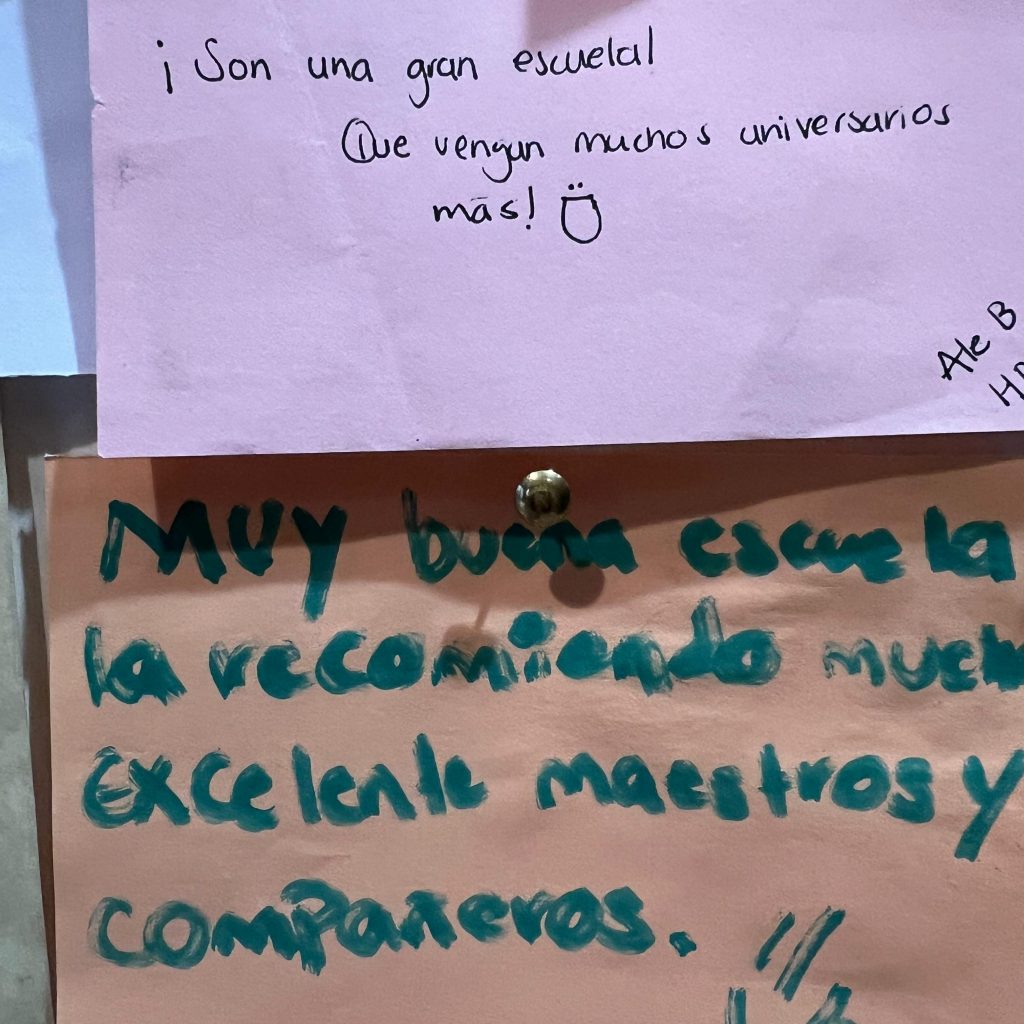 ¡Son una gran escuela!
Que vengan muchos aniversarios
más! Ü
Ale B
Muy buena escuela
la recomiendo
Excelente maestros y
compañeros. "